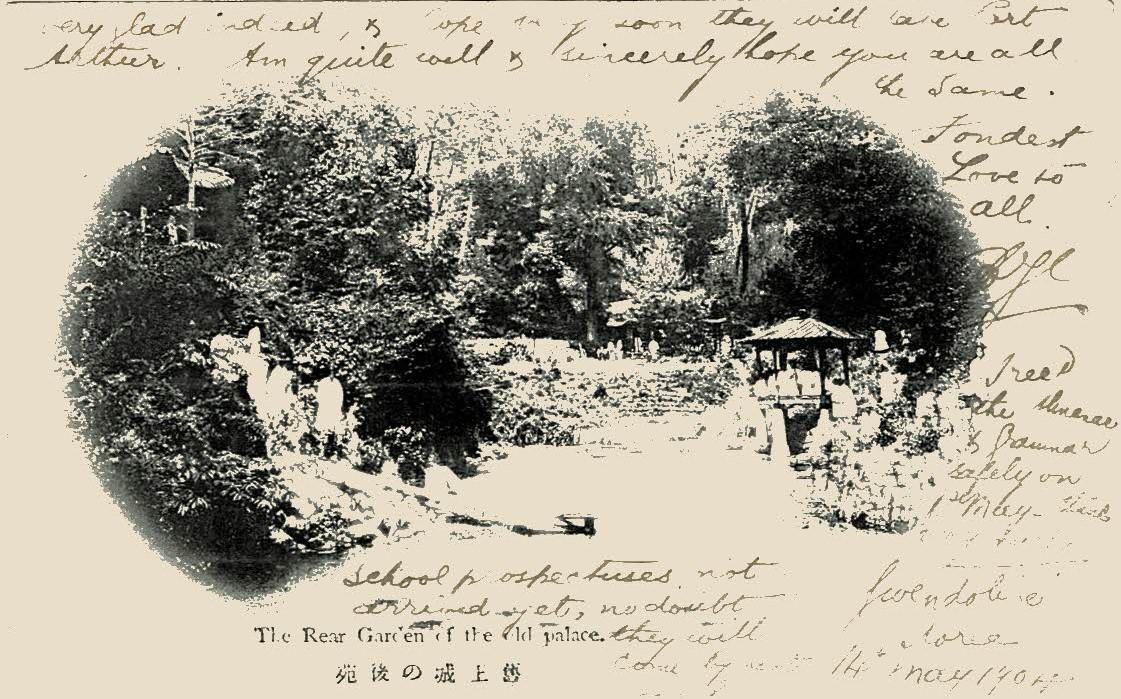 very glad indeed, & hope very soon they will have Port
Arthur. Am quite well & sincerely hope you are all
the same.
Fondest
Love to
all.
the
&
safely on
1st May
School prospectuses not
arrived yet, no doubt
they will
come by next
Gwendoline
Korea
14th May 1904
The Rear Garden of the old palace.
苑後の城上舊